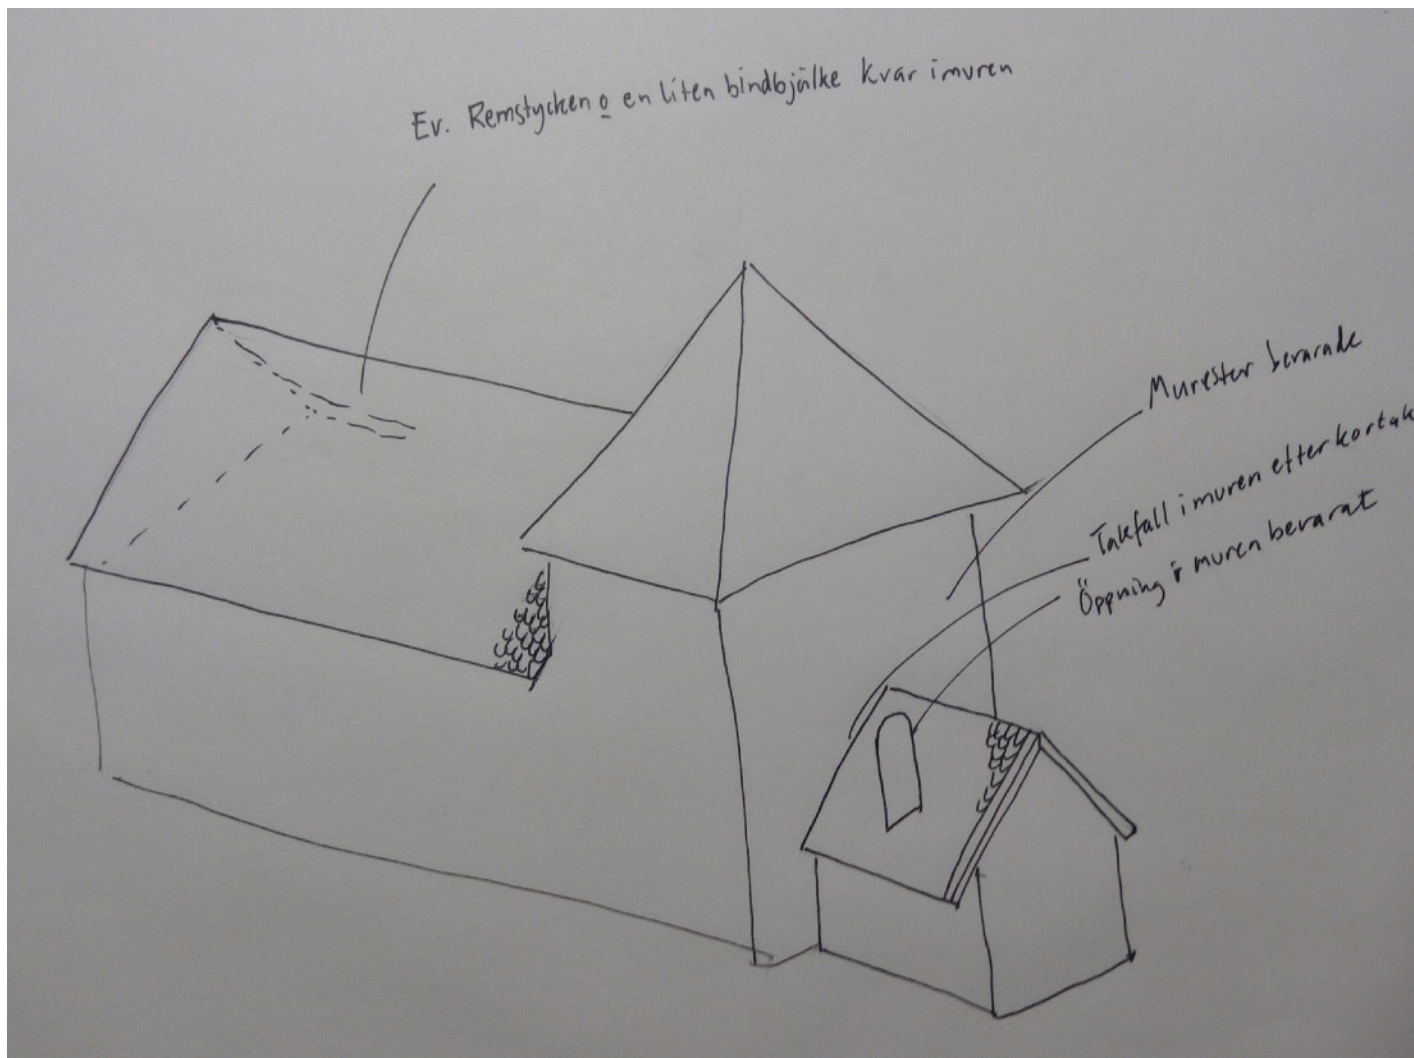 Ev. Remstycken o en liten bindbjälke kvar i muren
Murrester bevarade
Takfall i muren efter kortak
Öppning i muren bevarat